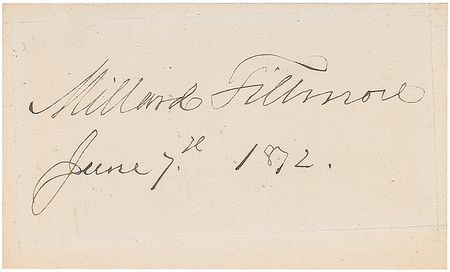 Millard Fillmore
June 7.th 1872.